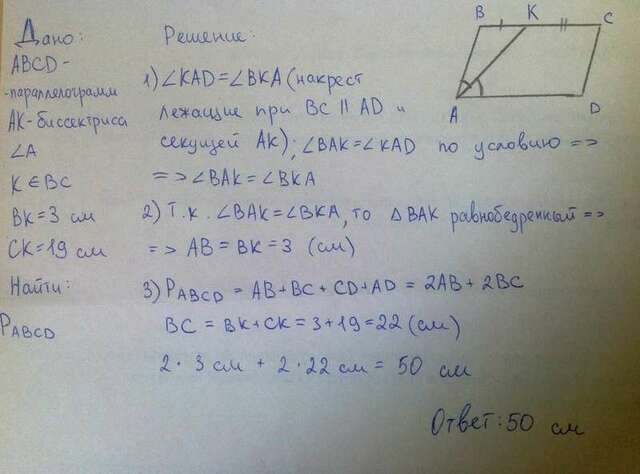 Дано:
ABCD -
-параллелограмм
AK-биссектриса
∠A
K∈BC
BK=3 см
CK=19 см
Найти:
P ABCD
Решение:
1) ∠KAD=∠BKA (накрест
лежащие при BC || AD и
секущей AK); ∠BAK=∠KAD по условию =>
=> ∠BAK=∠BKA
2) Т.к. ∠BAK=∠BKA, то △BAK равнобедренный =>
=> AB = BK = 3 (см)
3) P ABCD = AB+BC+CD+AD = 2AB + 2BC
BC = BK+CK = 3+19=22 (см)
2 · 3 см + 2 · 22 см = 50 см
Ответ: 50 см
B K C
A D